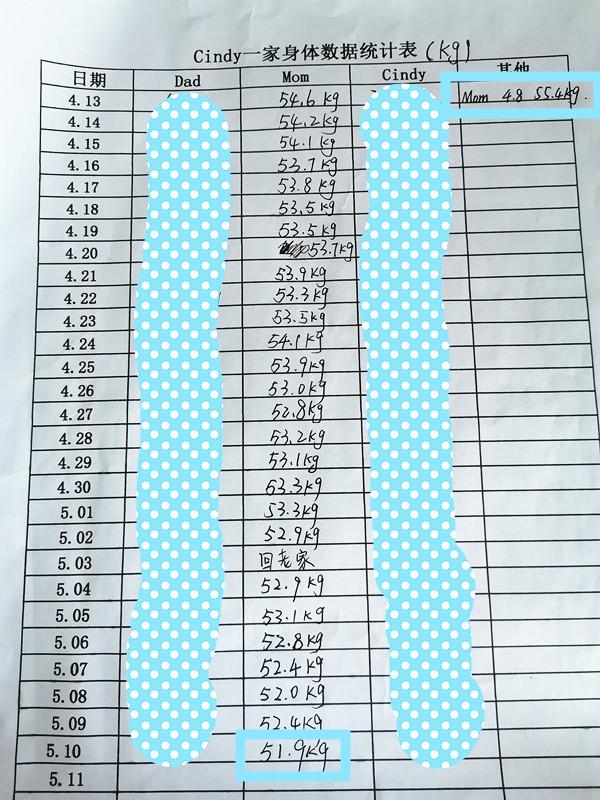 Cindy一家身体数据统计表(kg)
日期 Dad Mom Cindy 其他
4.13 54.6 kg Mom 4.8 55.4kg.
4.14 54.2 kg
4.15 54.1 kg
4.16 53.7 kg
4.17 53.8 kg
4.18 53.5 kg
4.19 53.5 kg
4.20 53.7kg
4.21 53.9kg
4.22 53.3kg
4.23 53.5kg
4.24 54.1kg
4.25 53.9kg
4.26 53.0kg
4.27 52.8kg
4.28 53.2kg
4.29 53.1kg
4.30 53.3kg
5.01 53.3kg
5.02 52.9kg
5.03 回老家
5.04 52.9 kg
5.05 53.1 kg
5.06 52.8kg
5.07 52.4kg
5.08 52.0 kg
5.09 52.4kg
5.10 51.9kg
5.11